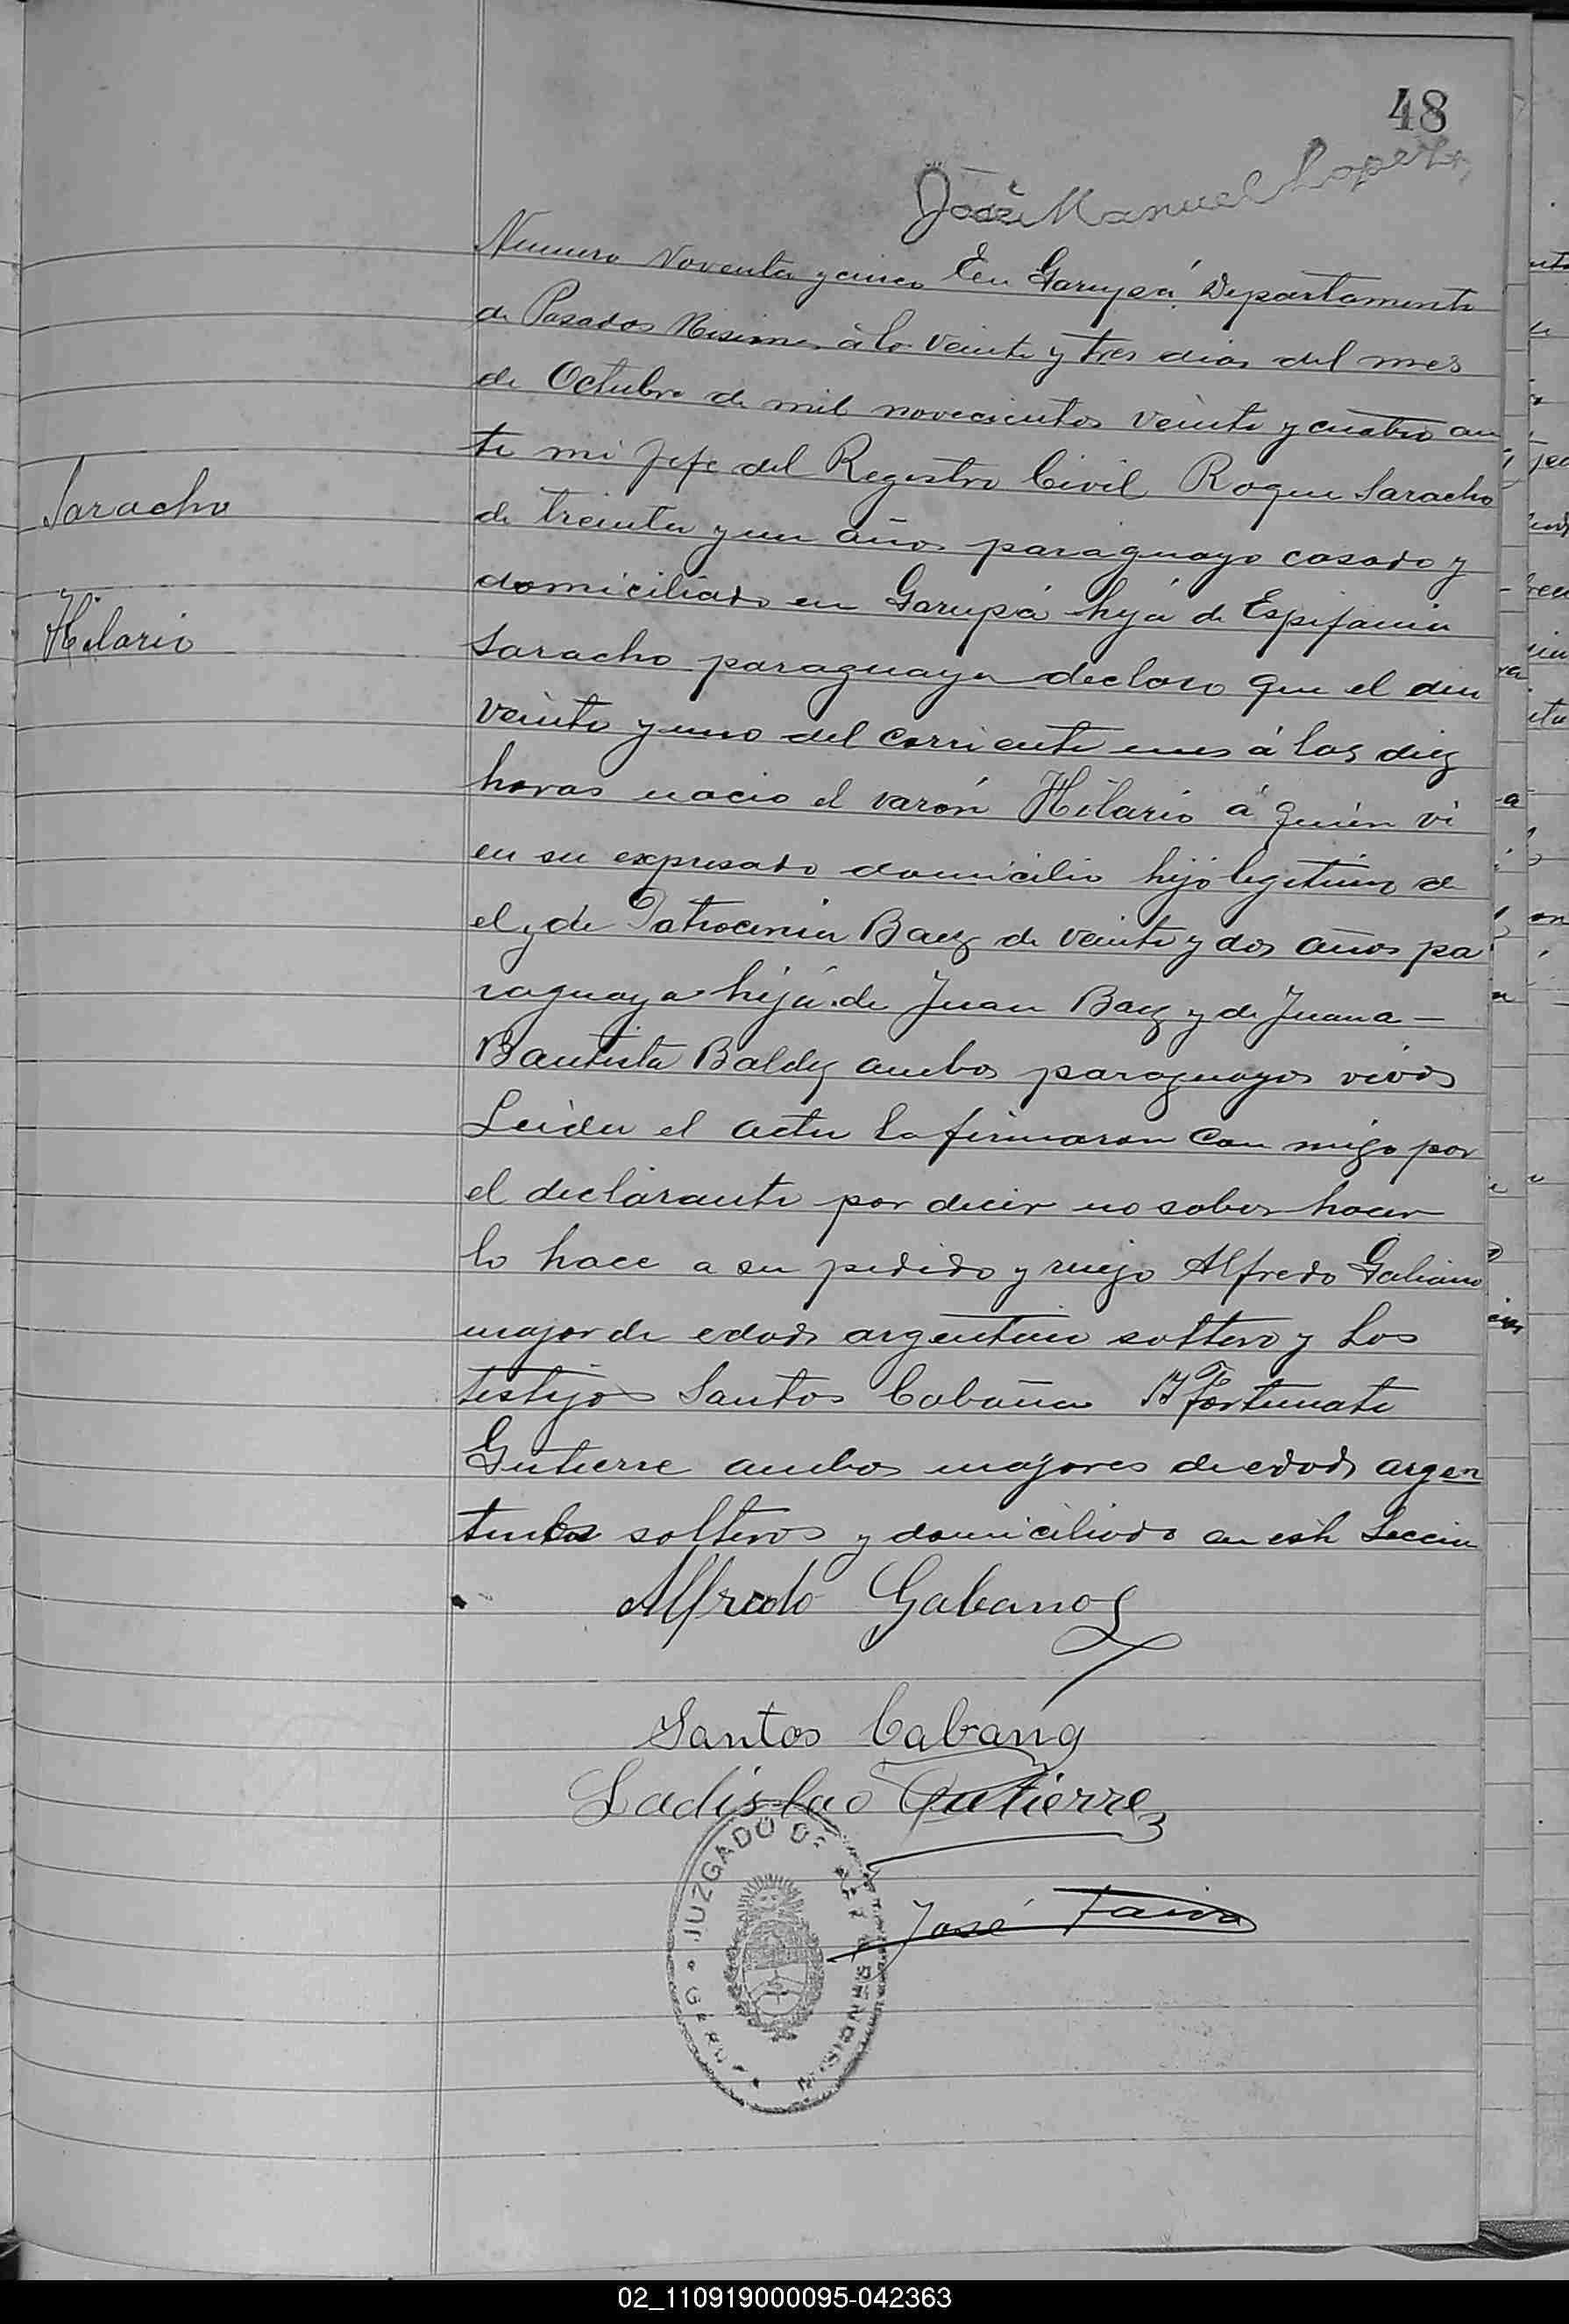 48
José Manuel Lopez
Numero Noventa y cinco En Garupá Departamento
de Posadas Misiones á lo veinte y tres dias del mes
de Octubre de mil novecientos veinte y cuatro an
te mi Jefe del Registro Civil Roque Saracho
de treinta y un años paraguayo casado y
domiciliado en Garupá hijo de Espifania
Saracho paraguaya declaro que el dia
veinte y uno del corriente mes á las diez
horas nacio el varón Hilario á quién vi
en su expresado domicilio hijo legitimo de
el y de Patrocinia Baez de veinte y dos años pa
raguaya hija de Juan Baez y de Juana —
Bautista Baldez ambos paraguayos vivos
Leida el acta la firmaron con migo por
el declarante por decir no saber hacer
lo hace a su pedido y ruego Alfredo Galiano
mayor de edad argentino soltero y los
testigos Santos Cabaña Y Fortunato
Gutierre ambos mayores de edad argen
tinos solteros y domiciliado en esta Seccion
Saracho
Hilario
Alfredo Gabano
Santos Cabana
Ladislao Gutierrez
José Paiva
JUZGADO DE PAZ
MISIONES
02_110919000095-042363